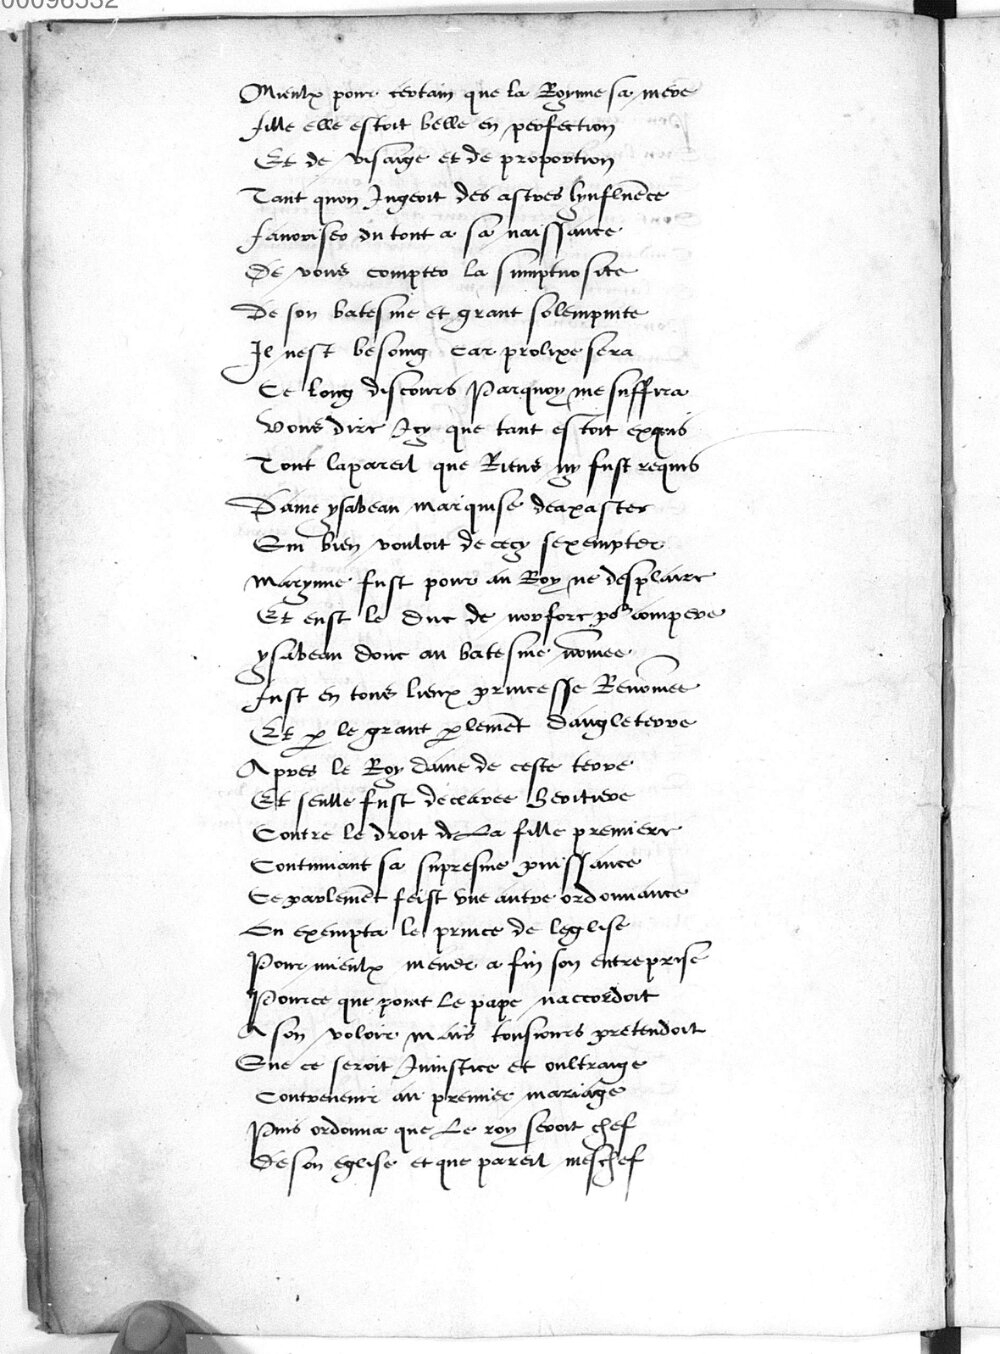 00096532
Mieulx pour certain que la Royne sa mere
fille elle estoit belle en perfection
Et de visaige et de proportion
Tant quon Jugeoit des astres lynfluēce
favoriser du tout a sa naissance
De vous compter la sumptuosite
De son batesme et grant solempnite
Il nest besoing Car prolixe sera
Ce long discours Parquoy me suffira
Vous dire Icy que tant estoit exquis
Tout lapareil que Riens ny fust requis
Dame ysabeau marquise dexaster
Sin bien vouloit de cecy sexempter
Maryne fust pour au Roy ne desplaire
Et eust le duc de norforc por compere
ysabeau donc au batesme nōmee
fust en tous lieux princesse Renōmee
Et p le grant plemēt dangleterre
Apres le Roy dame de ceste terre
Et seulle fust declaree heritiere
Contre le droit de La fille premiere
Continuant sa supresme puissance
Ce parlemēt feist vne autre ordonnance
En exempta le prince de leglise
Pour mieulx mener a fin son entreprise
Pource que point Le pape naccordoit
A son voloir mais tousiours pretendoit
Que ce seroit Iniustice et oultraige
Contrevenir au premier mariage
Puis ordonna que Le roy seroit chef
De son eglise et que pareil meschef